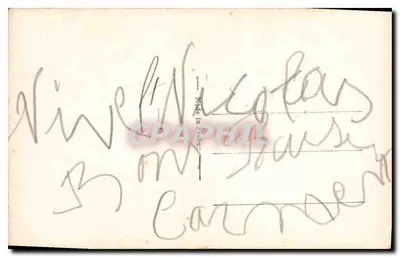 Vive St Nicolas
Bons baisers
Carmen
Made in France
CPAPHIL